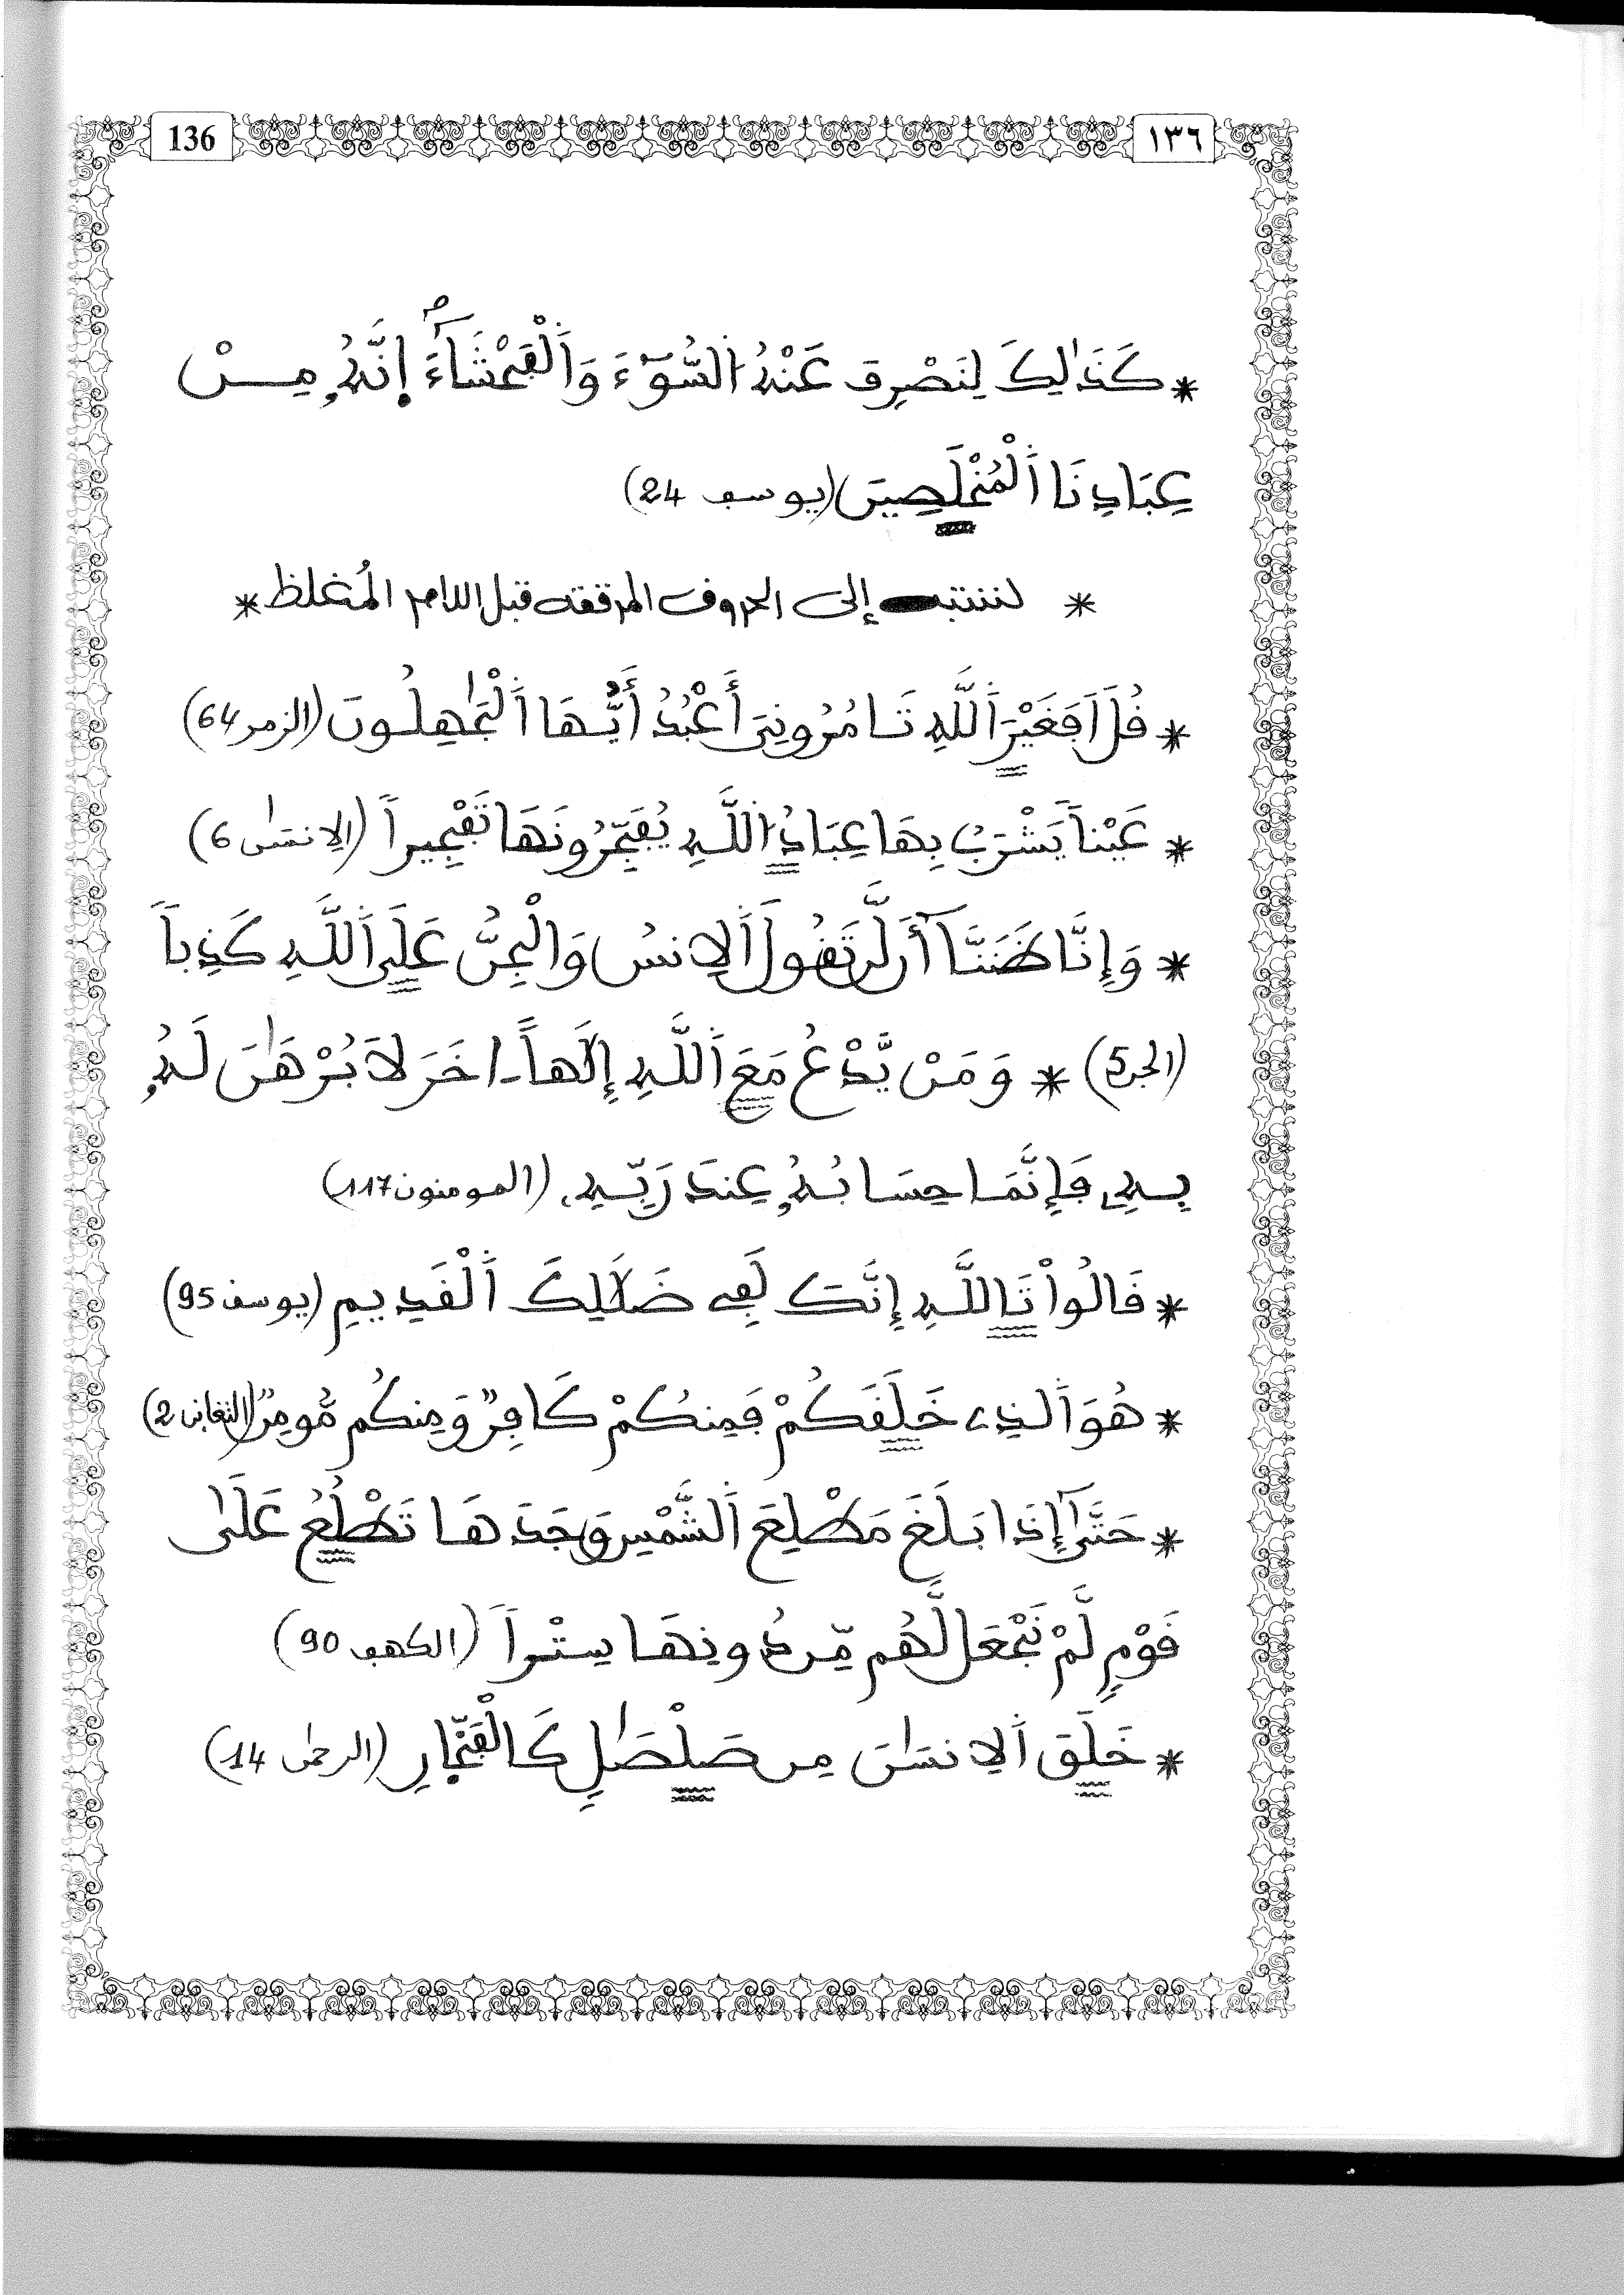 136 ١٣٦
* كَذَٰلِكَ لِنَصْرِفَ عَنْهُ اُلسُّوٓءَ وَالْفَحْشَآءَ اِنَّهُۥ مِــنْ
عِبَادِنَا اَلْمُخْلَصِينَ (يوسف 24)
* لننتبه إلى الحروف المرققة قبل اللام المُغلظ *
* قُلَ اَفَغَيْرَ اَللَّهِ تَامُرُونِيَ أَعْبُدُ أَيُّهَا اَلْجَٰهِلُونَ (الزمر 64)
* عَيْناً يَشْرَبُ بِهَا عِبَادُ اُللَّهِ يُفَجِّرُونَهَا تَفْجِيراً (الانسٰن 6)
* وَإِنَّا ظَنَنَّآ أَن لَّن تَقُولَ اَلِانسُ وَالْجِنُّ عَلَى اَللَّهِ كَذِباً
(الجن 5) * وَمَنْ يَّدْعُ مَعَ اَللَّهِ إِلَٰهاً ـ اخَرَ لَا بُرْهَٰنَ لَهُۥ
بِهِۦ فَإِنَّمَا حِسَابُهُۥ عِندَ رَبِّهِۦ (المومنون 117)
* قَالُواْ تَاللَّهِ إِنَّكَ لَفِى ضَلَٰلِكَ اَلْقَدِيمِ (يوسف 95)
* هُوَ اَلذِى خَلَقَكُمْ فَمِنكُمْ كَافِرٌ وَمِنكُم مُّومِنٌ (التغابن 2)
* حَتَّىٰٓ إِذَا بَلَغَ مَطْلِعَ اَلشَّمْسِ وَجَدَهَا تَطْلُعُ عَلَىٰ
قَوْمٍ لَّمْ نَجْعَل لَّهُم مِّن دُونِهَا سِتْراً (الكهف 90)
* خَلَقَ اَلِانسَٰنَ مِن صَلْصَٰلٍ كَالْفَخّارِ (الرحمٰن 14)